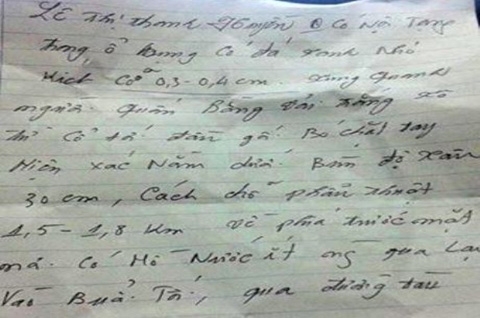 Lê Thị Thanh có Nội Tạng
trong ổ bụng có đá xanh Nhỏ
Kích Cỡ 0,3 - 0,4 cm. xung quanh
người. quấn Bằng vải trắng xô
thi có tả đầu gấ. Bó chất tay
Hiện xác Nằm dưới Bùn độ sâu
30 cm, Cách chỗ phẫu thuật
1,5 - 1,8 Km về phía trước mặt
má. Có Hồ Nước ít ng qua Lại
Vào Buổi Tối, qua đường tàu